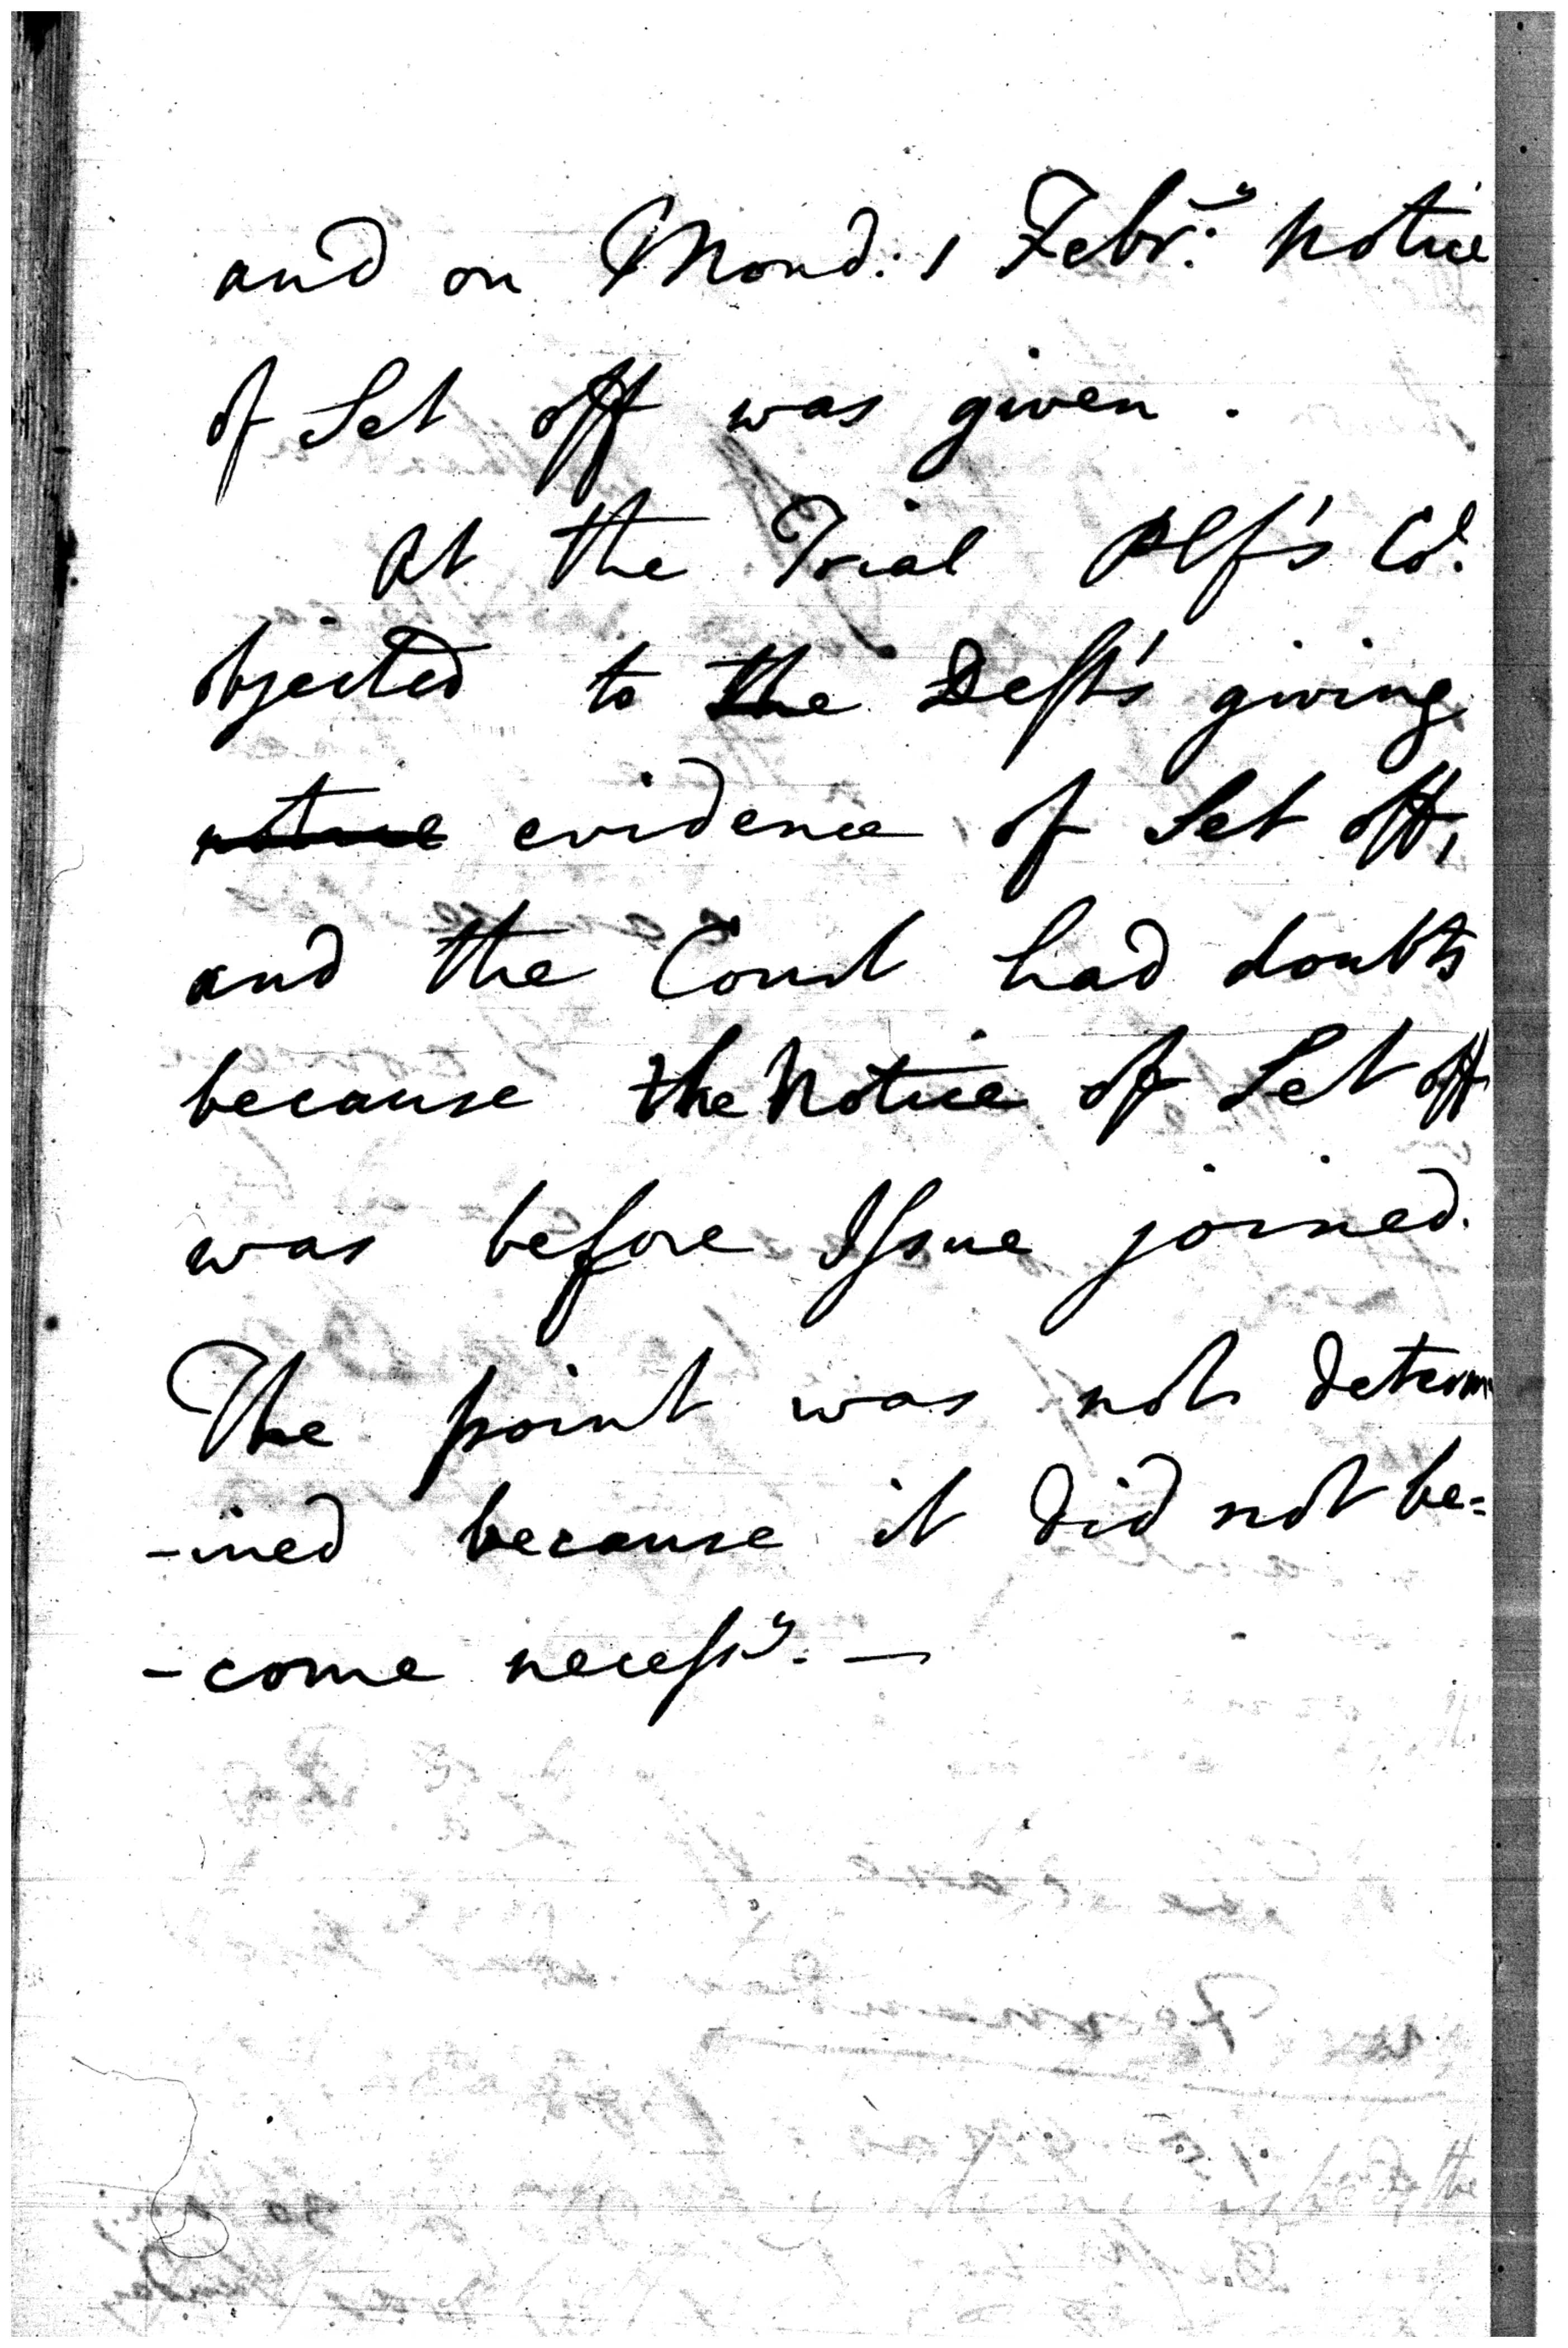 and on Mond: 1 Febr:y Notice
of Set off was given.
At the Trial Plf's Col.
objected to the Deft's giving
notice evidence of Set off,
and the Court had doubts
because the Notice of Set off
was before Issue joined.
The point was not determ
-ined because it did not be=
-come necessy. —